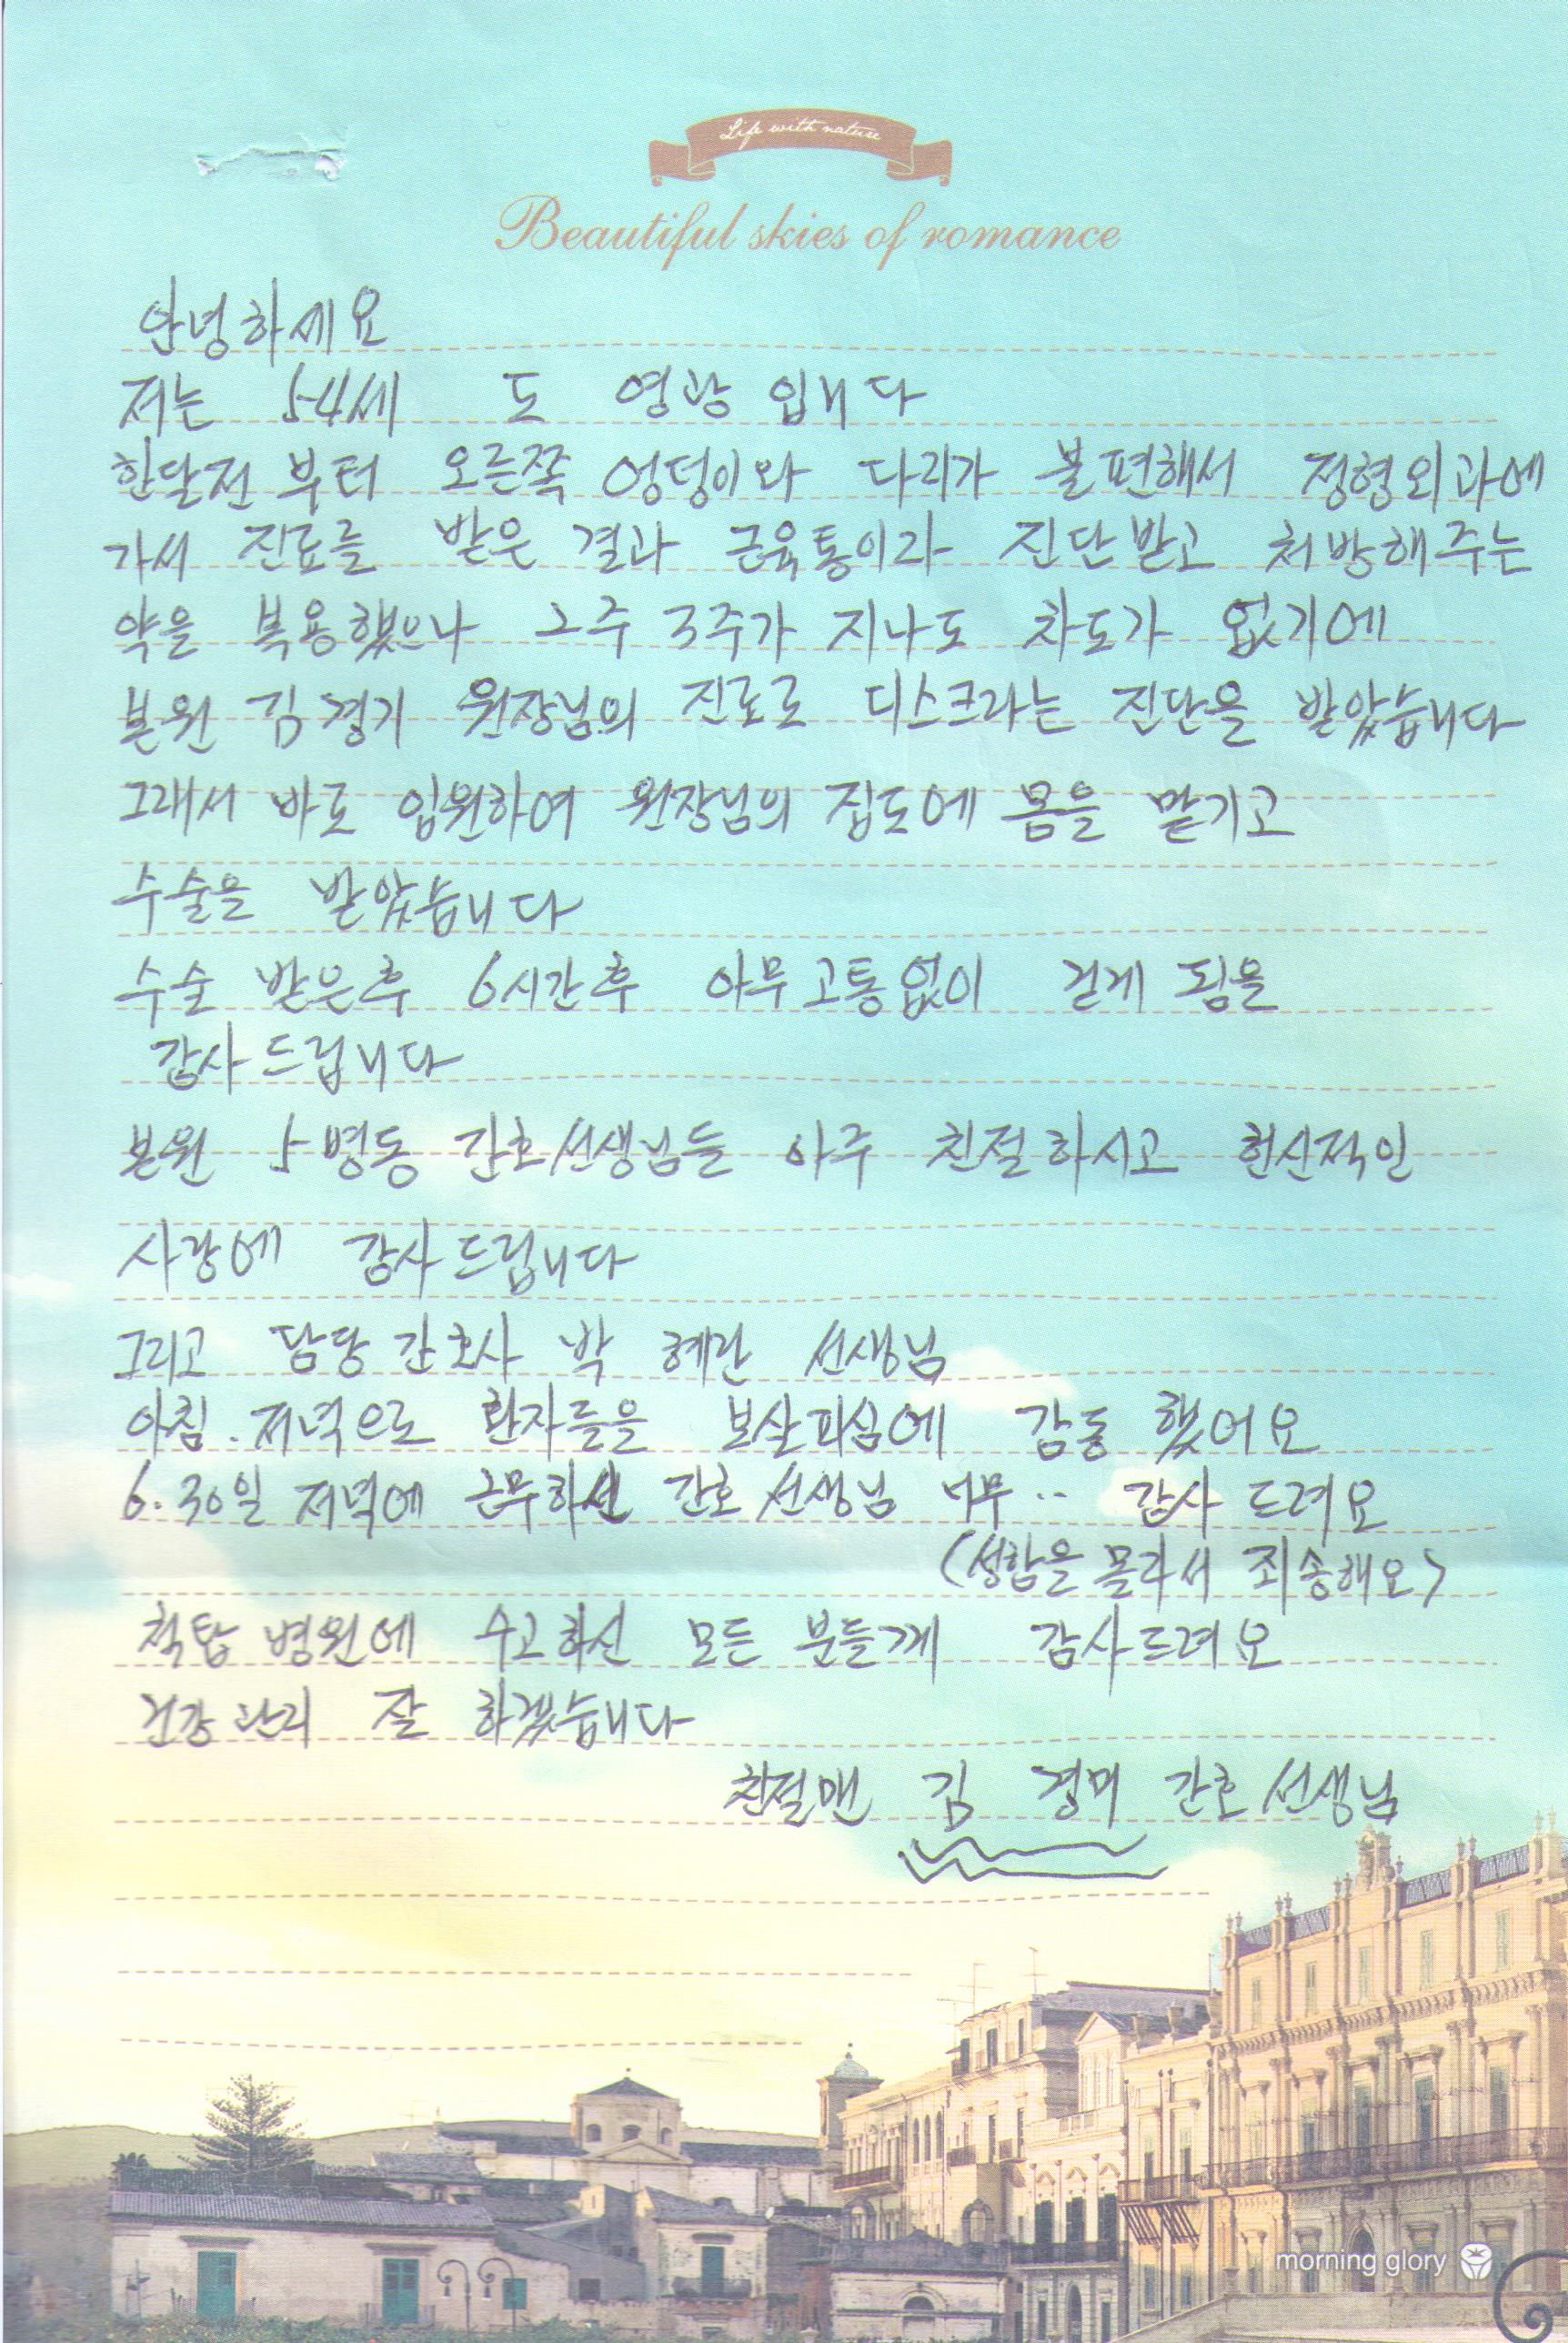 Life with nature
Beautiful skies of romance
안녕하세요
저는 54세 도 영광 입니다
한달전 부터 오른쪽 엉덩이와 다리가 불편해서 정형외과에
가서 진료를 받은 결과 근육통이라 진단받고 처방해주는
약을 복용했으나 2주 3주가 지나도 차도가 없기에
본원 김경기 원장님의 진료로 디스크라는 진단을 받았습니다
그래서 바로 입원하여 원장님의 집도에 몸을 맡기고
수술을 받았습니다
수술 받은후 6시간후 아무고통없이 걷게 됨을
감사드립니다
본원 5병동 간호선생님들 아주 친절하시고 헌신적인
사랑에 감사드립니다
그리고 담당 간호사 박 혜란 선생님
아침.저녁으로 환자들을 보살피심에 감동 했어요
6.30일 저녁에 근무하신 간호선생님 너무.. 감사 드려요
(성함을 몰라서 죄송해요)
척탑 병원에 수고하신 모든 분들께 감사드려요
건강관리 잘 하겠습니다
친절맨 김 경미 간호선생님
morning glory